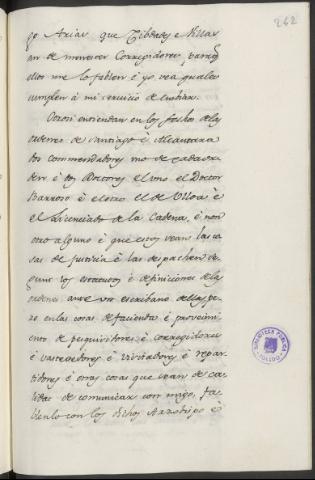 262
go Arias que Cibdades e Villas
an de menester Corregidores para q
ellos me lo fablen è yo vea quales
cumplen à mi servicio de embiar.
Otrosi entiendan en los fechos de las
ordenes de Santiago è Alcantara
dos commendadores uno de cada or
den è dos Doctores el uno el Doctor
Barroso è el otro el de Ulloa è
el Licenciado de la Cadena, è non
otro alguno è que estos vean las co
sas de justicia è las despachen se
gunt los estatutos è definiciones de las
ordenes ante un escribano de las
ro en las cosas de facienda è proveimi
ento de pesquisidores è corregidores
è vasteadores è visitadores è repar
tidores è otras cosas que sean de ca
lidad de comunicar con migo, fa
blenlo con los dichos Arzobispo è
BIBLIOTECA PÚBLICA
TOLEDO